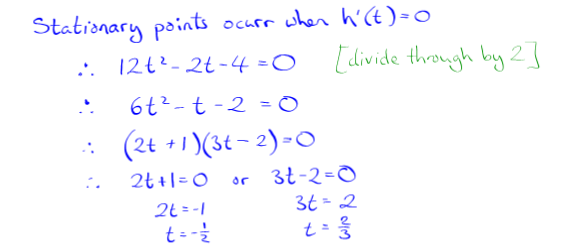 Stationary points ocurr when h'(t)=0
∴ 12t² - 2t - 4 = 0 [divide through by 2]
∴ 6t² - t - 2 = 0
∴ (2t + 1)(3t - 2) = 0
∴ 2t + 1 = 0 or 3t - 2 = 0
2t = -1 3t = 2
t = -1/2 t = 2/3